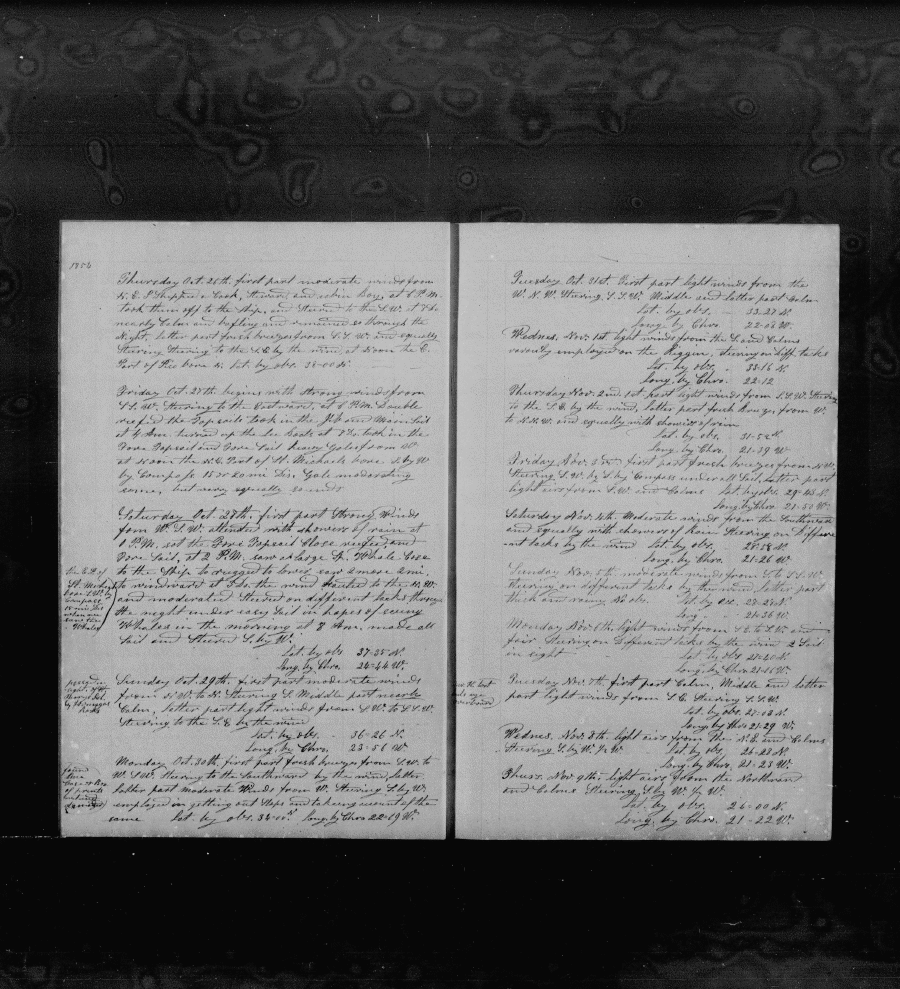 1854
Thursday Oct. 26th, first part moderate winds from
N.E. Shipped a Cook, Steward, and cabin boy, at 6 P.M.
took them off to the Ship, and Steered to the S.W. at
nearly Calm and bafling and remained so through the
Night, latter part fresh breezes from S.S.W. and squally
Steering to the S.E. by the wind, at Noon the E.
Part of Pico bore N. Lat. by obs. 38-00 N.
Friday Oct. 27th begins with Strong winds from
S.S.W. Steering to the Eastward, at 6 P.M. Double
reefed the Topsails Took in the Jib and Main Sail
at 6 Am. turned up the Lee Boats at took in the
Fore Topsail and Fore Sail heavy Gales from W.
at Noon the N.E. Part of St. Michaels bore S. by W
by Compass 15 or 20 mi. Dis. Gale moderating
some, but very squally
Saturday Oct. 28th, first part Strong winds
from W.S.W. attended with showers of rain at
1 P.M. set the Fore Topsail Close reefed, and
Fore Sail, at 2 P.M. saw a Large Whale Close
to the Ship to rugged to lower, saw 2 more 2 mi.
to windward at the wind hauled to the N.W.
and moderated Steered on different tacks through
the night under easy Sail in hopes of seeing
Whales in the morning at 8 Am. made all
Sail and Steered S. by W.
Lat. by obs 37-25 N.
Long. by Chro. 24-44 W.
the E.P. of
St. Michaels
bore S.W. by
Compass
15 mi. Dis
when we
saw the
Whales
Sunday Oct. 29th, first part moderate winds
from N.W. to N. Steering S. Middle part nearly
Calm, latter part light winds from S.W. to S.S.W.
Steering to the S.E by the wind
Lat. by obs. 36-26 N.
Long. by Chro. 23-56 W.
Monday Oct. 30th, first part fresh breezes from S.W. to
W.S.W. Steering to the Southward by the wind, latter
latter part moderate Winds from W. Steering S. by W.
employed in getting out Slops and taking account of the
same Lat. by obs. 34-00 N Long. by Chro 22-09 W.
found
one
Case & Box
of prints
damaged
Tuesday Oct. 31st. First part light winds from the
W.N.W. Steering S.S.W. Middle and latter part Calm
Lat. by obs. 33-27 N.
Long by Chro. 22-08 W.
Wednes. Nov. 1st. light winds from the S. and Calms
employed on the Riggin, Steering on Diff. tacks
Lat. by obs. 33-16 N.
Long. by Chro. 22-12
Thursday Nov. 2nd, 1st. part light winds from S.W. Steering
to the S.E. by the wind, latter part fresh breeze, from W.
to N.N.W. and squally with showers of rain
Lat. by obs. 31-52 N
Long. by Chro. 21-39 W.
Friday Nov. 3rd. first part fresh breezes from N.W.
Steering S.W. by S. by Compass under all Sail, latter part
light airs from S.W. and Calms Lat. by obs. 29-45 N.
Long. by Chro. 21-50 W.
Saturday Nov. 4th Moderate winds from the Southward
and squally with showers of rain Steering on Differe
-nt tacks by the wind Lat. by obs. 28-58 N.
Long. by Chro. 21-26 W.
Sunday Nov. 5th, moderate winds from S. to S.S.W.
Steering on different tacks by the wind, latter part
thick and rainy No obs. Lat. by Acc. 28-25 N.
Long. 21-36 W.
Monday Nov. 6th, light winds from S.E. to S.W. and
fair Steering on Different tacks by the wind 2 Sail
in sight Lat. by obs 27-40 N.
Long. by Chro 21-15 W.
Tuesday Nov. 7th, first part Calm, Middle and latter
part light winds from S.E. Steering S.S.W.
Lat. by obs. 27-03 N.
Long. by Chro 21-29 W.
overboard
Wednes. Nov. 8th, light airs from the N.E. and Calms
Steering S. by W. ½ W. Lat. by obs. 26-23 N.
Long. by Chro. 21-23 W.
Thurs. Nov. 9th, light airs from the Northward
and Calms Steering S. by W. ½ W.
Lat. by obs. 26-00 N.
Long. by Chro. 21-22 W.